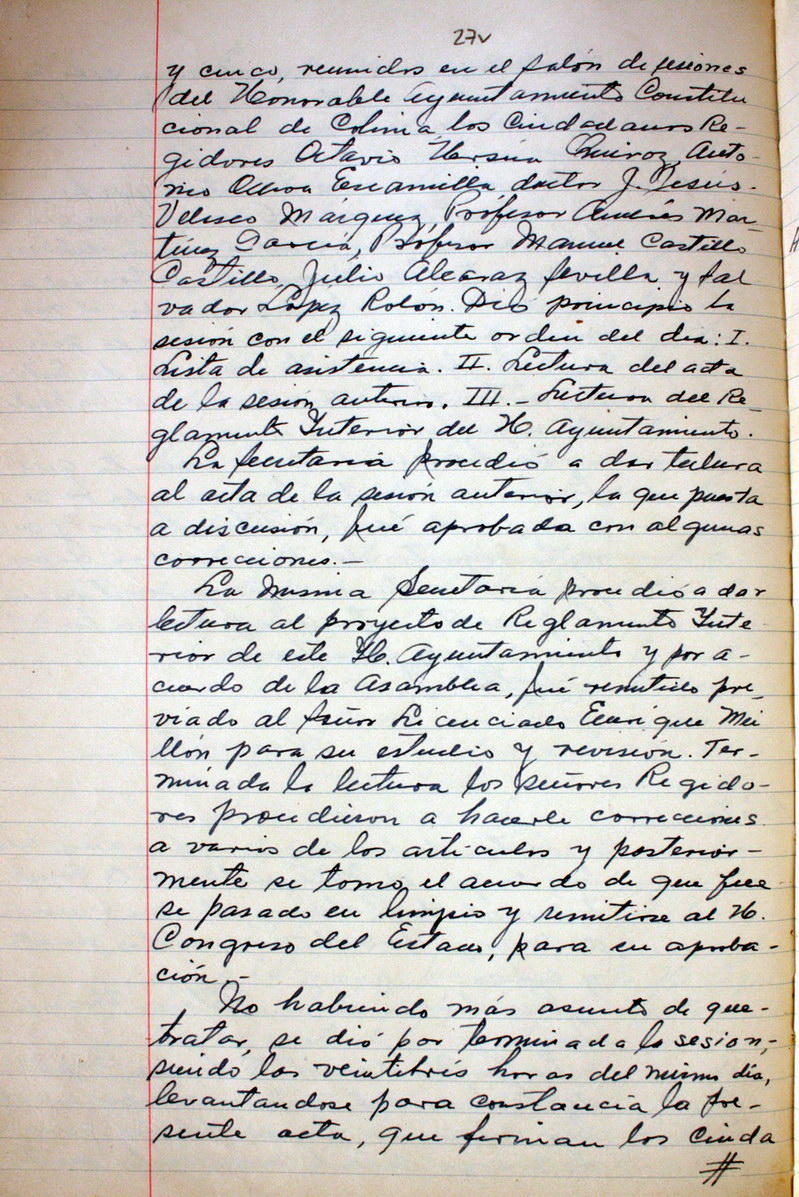 27v
y cinco, reunidos en el salón de sesiones
del Honorable Ayuntamiento Constitu
cional de Colima los Ciudadanos Re-
gidores Octavio Quiroz, Anto-
nio Ochoa Escamilla doctor J. Jesús
Velasco Márquez, Profesor Andrés Mar-
tínez García, Profesor Manuel Castillo
Castillo, Julio Alcaraz Sevilla y Sal
vador López Rolón. Dió principio la
sesión con el siguiente orden del dia: I.
Lista de asistencia. II. Lectura del acta
de la sesión anterior. III.- Lectura del Re-
glamento Interior del H. Ayuntamiento.
La Secretaría procedió a dar lectura
al acta de la sesión anterior, la que puesta
a discusión, fué aprobada con algunas
correcciones.-
La misma Secretaría procedió a dar
lectura al proyecto de Reglamento Inte-
rior de este H. Ayuntamiento y por a-
cuerdo de la Asamblea, fué remitido pre-
viado al Señor Licenciado Enrique
para su estudio y revisión. Ter-
minada la lectura los señores Regido-
res procedieron a hacerle correcciones
a varios de los artículos y posterior-
mente se tomo el acuerdo de que fue
se pasado en limpio y remitirse al H.
Congreso del Estado, para su aproba-
ción.-
No habiendo más asunto de que-
tratar, se dió por terminada la sesion,-
siendo las veintitrés horas del mismo día,
levantandose para constancia la pre-
sente acta, que firman los ciuda
#